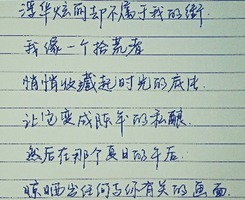 浮华炫丽却不属于我的街.
我像一个拾荒者
悄悄收藏起时光的底片
让它变成陈年的私酿.
然后在那个夏日的午后.
晾晒出任何与你有关的画面.